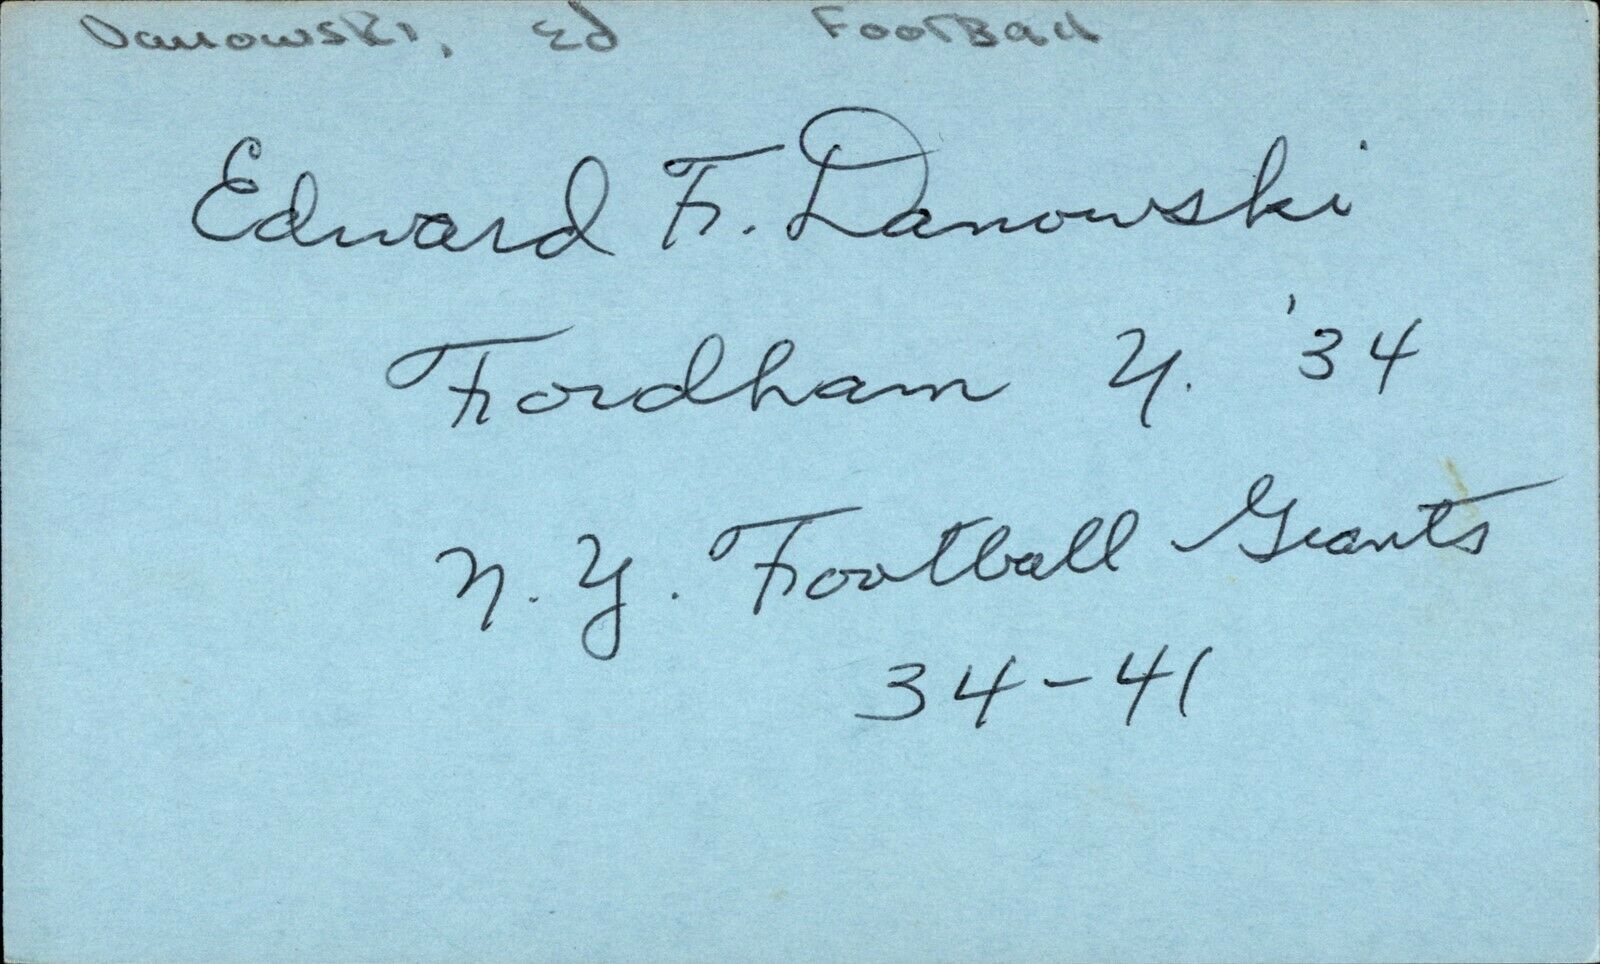 Danowski, Ed Football
Edward F. Danowski
Fordham U. '34
N. Y. Football Giants
34-41